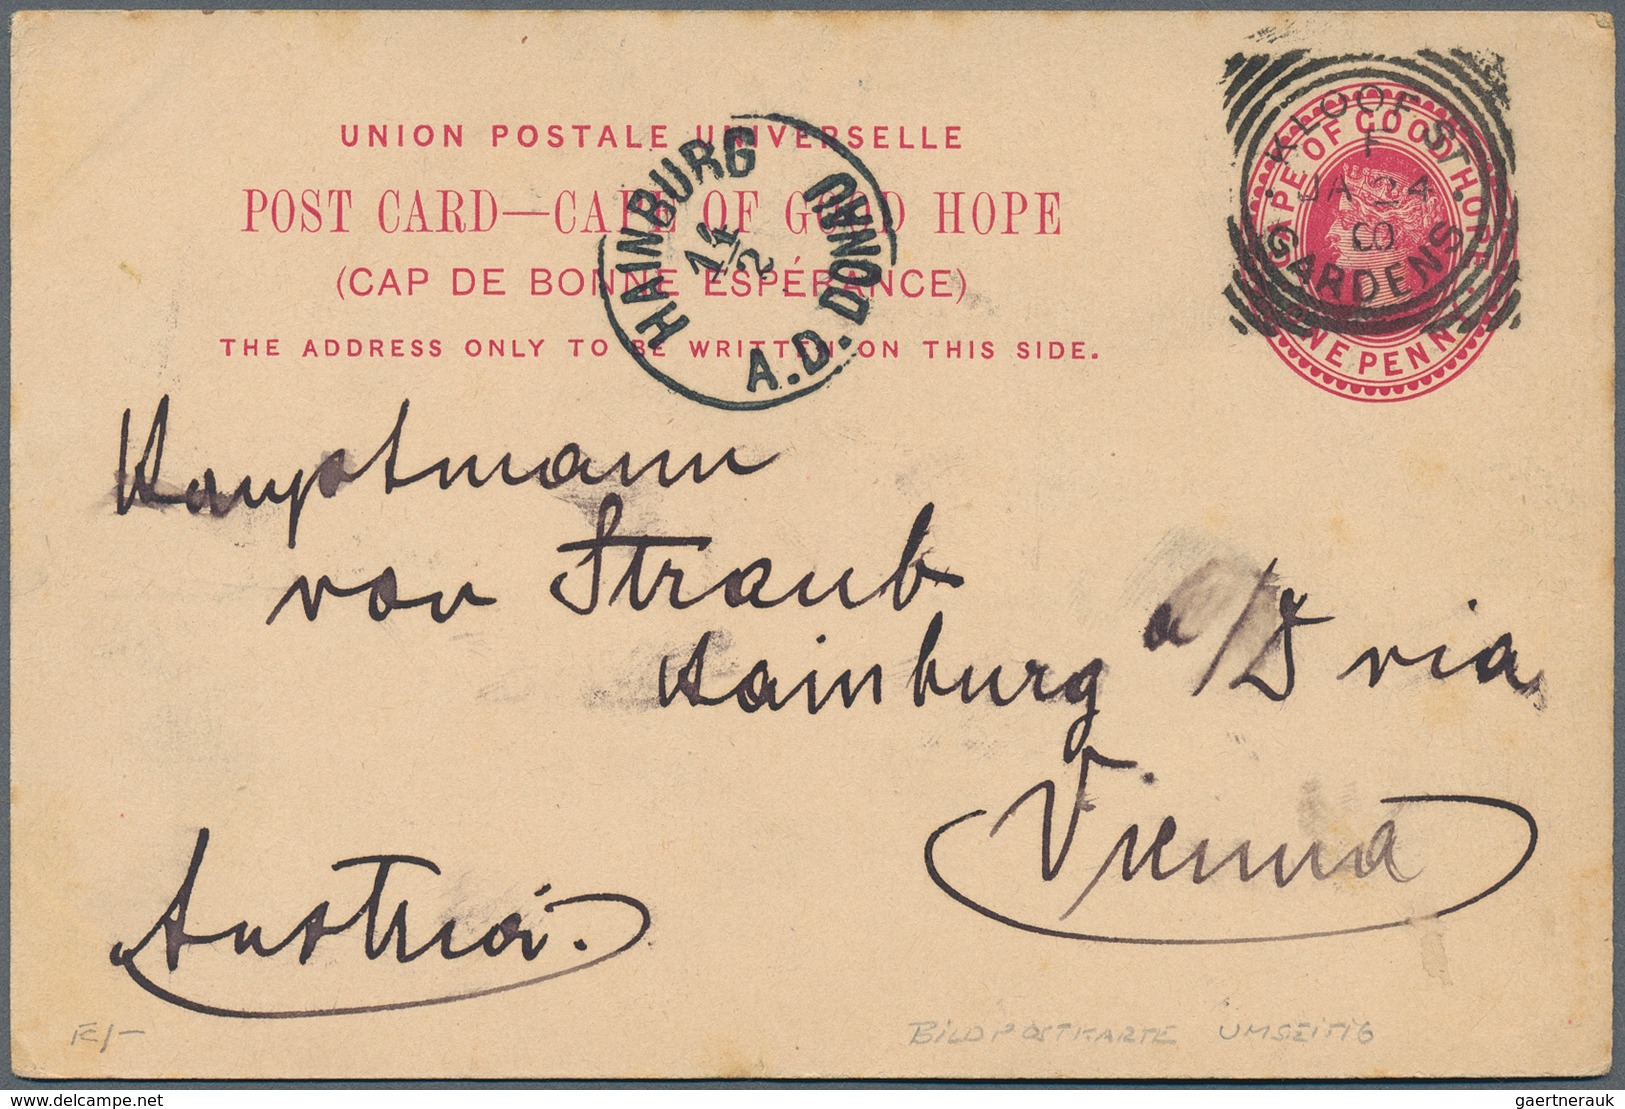 UNION POSTALE UNIVERSELLE
POST CARD—CAPE OF GOOD HOPE
(CAP DE BONNE ESPÉRANCE)
THE ADDRESS ONLY TO BE WRITTEN ON THIS SIDE.
HAINBURG A.D. DONAU
14/2
CAPE OF GOOD HOPE
ONE PENNY
KLOOF ST.
F
JA 24
00
GARDENS
Hauptmann
von Straub
Hainburg a/D via
Vienna
Austria.
BILDPOSTKARTE UMSEITIG
Delcampe.net
gaertnerauk